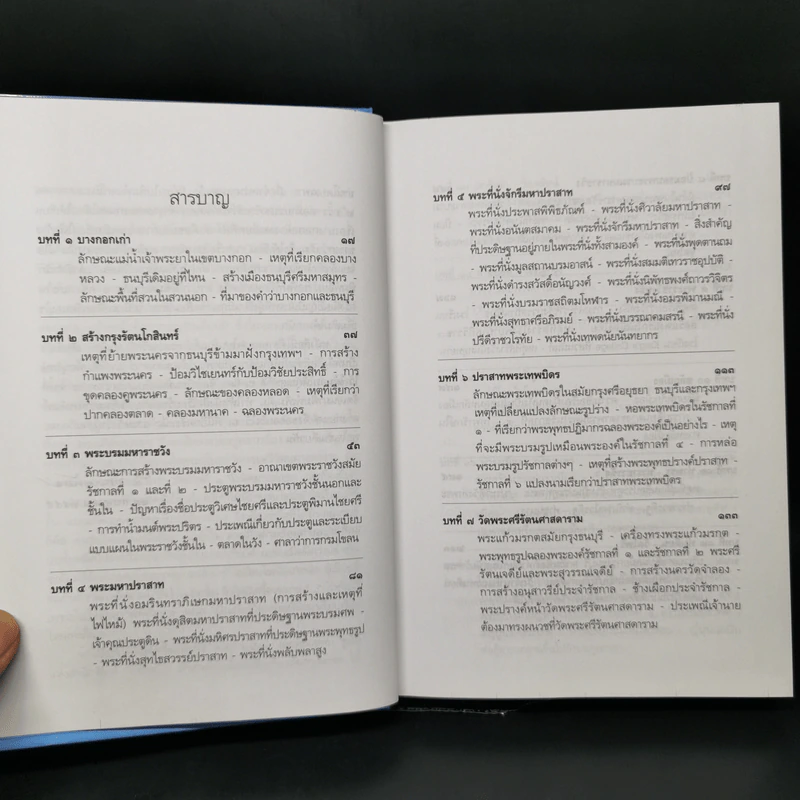 สารบาญ
บทที่ ๑ บางกอกเก่า ๑๗
ลักษณะแม่น้ำเจ้าพระยาในเขตบางกอก - เหตุที่เรียกคลองบาง
หลวง - ธนบุรีเดิมอยู่ที่ไหน - สร้างเมืองธนบุรีศรีมหาสมุทร -
ลักษณะพื้นที่สวนในสวนนอก - ที่มาของคำว่าบางกอกและธนบุรี
บทที่ ๒ สร้างกรุงรัตนโกสินทร์ ๓๗
เหตุที่ย้ายพระนครจากธนบุรีข้ามมาฝั่งกรุงเทพฯ - การสร้าง
กำแพงพระนคร - ป้อมวิไชเยนทร์กับป้อมวิชัยประสิทธิ์ - การ
ขุดคลองคูพระนคร - ลักษณะของคลองหลอด - เหตุที่เรียกว่า
ปากคลองตลาด - คลองมหานาค - ฉลองพระนคร
บทที่ ๓ พระบรมมหาราชวัง ๕๓
ลักษณะการสร้างพระบรมมหาราชวัง - อาณาเขตพระราชวังสมัย
รัชกาลที่ ๑ และที่ ๒ - ประตูพระบรมมหาราชวังชั้นนอกและ
ชั้นใน - ปัญหาเรื่องชื่อประตูวิเศษไชยศรีและประตูพิมานไชยศรี
- การทำน้ำมนต์พระปริตร - ประเพณีเกี่ยวกับประตูและระเบียบ
แบบแผนในพระราชวังชั้นใน - ตลาดในวัง - ศาลาว่าการกรมโขลน
บทที่ ๔ พระมหาปราสาท ๘๑
พระที่นั่งอมรินทราภิเษกมหาปราสาท (การสร้างและเหตุที่
ไฟไหม้) พระที่นั่งดุสิตมหาปราสาทที่ประดิษฐานพระบรมศพ -
เจ้าคุณประตูดิน - พระที่นั่งมหิศรปราสาทที่ประดิษฐานพระพุทธรูป
- พระที่นั่งสุทไธสวรรย์ปราสาท - พระที่นั่งพลับพลาสูง
บทที่ ๕ พระที่นั่งจักรีมหาปราสาท ๙๗
พระที่นั่งประพาสพิพิธภัณฑ์ - พระที่นั่งศิวาลัยมหาปราสาท -
พระที่นั่งอนันตสมาคม - พระที่นั่งจักรีมหาปราสาท - สิ่งสำคัญ
ที่ประดิษฐานอยู่ภายในพระที่นั่งทั้งสามองค์ - พระที่นั่งพุดตานถม
- พระที่นั่งมูลสถานบรมอาสน์ - พระที่นั่งสมมติเทวราชอุปบัติ -
พระที่นั่งดำรงสวัสดิ์อนัญวงศ์ - พระที่นั่งนิพัทธพงศ์ถาวรวิจิตร
- พระที่นั่งบรมราชสถิตมโหฬาร - พระที่นั่งอมรพิมานมณี -
พระที่นั่งสุทธาศรีอภิรมย์ - พระที่นั่งบรรณาคมสรนี - พระที่นั่ง
ปรีดีราชวโรทัย - พระที่นั่งเทพดนัยนันทยากร
บทที่ ๖ ปราสาทพระเทพบิดร ๑๑๓
ลักษณะพระเทพบิดรในสมัยกรุงศรีอยุธยา ธนบุรีและกรุงเทพฯ
เหตุที่เปลี่ยนแปลงลักษณะรูปร่าง - หอพระเทพบิดรในรัชกาลที่
๑ - ที่เรียกว่าพระพุทธปฏิมากรฉลองพระองค์เป็นอย่างไร - เหตุ
ที่จะมีพระบรมรูปเหมือนพระองค์ในรัชกาลที่ ๔ - การหล่อ
พระบรมรูปรัชกาลต่างๆ - เหตุที่สร้างพระพุทธปรางค์ปราสาท -
รัชกาลที่ ๖ แปลงนามเรียกว่าปราสาทพระเทพบิดร
บทที่ ๗ วัดพระศรีรัตนศาสดาราม ๑๓๓
พระแก้วมรกตสมัยกรุงธนบุรี - เครื่องทรงพระแก้วมรกต -
พระพุทธรูปฉลองพระองค์รัชกาลที่ ๑ และรัชกาลที่ ๒ พระศรี
รัตนเจดีย์และพระสุวรรณเจดีย์ - การสร้างนครวัดจำลอง -
การสร้างอนุสาวรีย์ประจำรัชกาล - ช้างเผือกประจำรัชกาล -
พระปรางค์หน้าวัดพระศรีรัตนศาสดาราม - ประเพณีเจ้านาย
ต้องมาทรงผนวชที่วัดพระศรีรัตนศาสดาราม